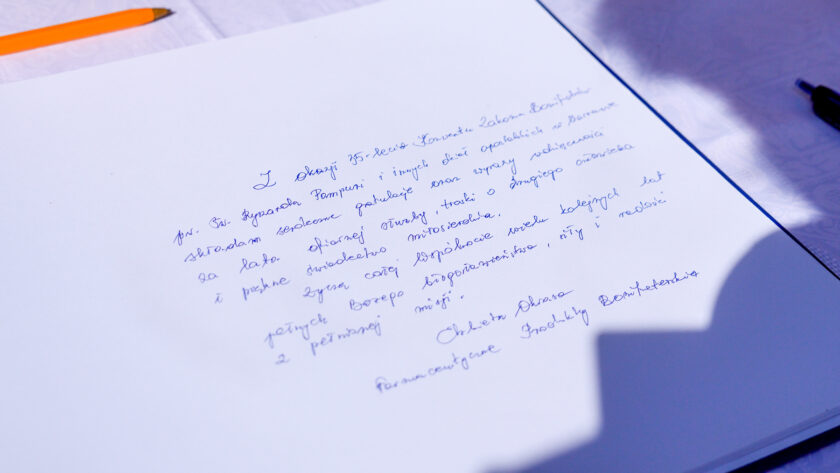 Z okazji 35-lecia Konwentu Zakonu Bonifratrów
pw. Św. Ryszarda Pampuri i innych dzieł apostolskich w Warszawie
składam serdeczne gratulacje oraz wyrazy wdzięczności
za lata ofiarnej służby, troski o drugiego człowieka
i piękne świadectwo miłosierdzia.
Życzę całej Wspólnocie wielu kolejnych lat
pełnych Bożego błogosławieństwa, siły i radości
z pełnionej misji.
Elżbieta Okrasa
Farmaceutyczne Produkty Bonifraterskie